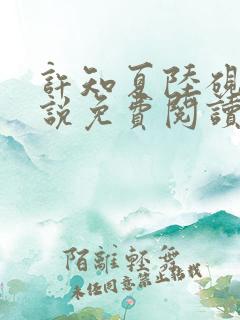 許知夏陸硯
說免費閱讀
陌離輕舞
未经同意禁止转载